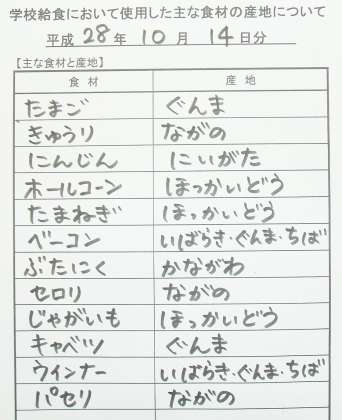 学校給食において使用した主な食材の産地について
平成 28 年 10 月 14 日分
【主な食材と産地】
食材 産地
たまご ぐんま
きゅうり ながの
にんじん にいがた
ホールコーン ほっかいどう
たまねぎ ほっかいどう
ベーコン いばらき・ぐんま・ちば
ぶたにく かながわ
セロリ ながの
じゃがいも ほっかいどう
キャベツ ぐんま
ウインナー いばらき・ぐんま・ちば
パセリ ながの